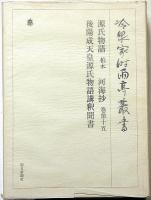 冷泉家時雨亭叢書
源氏物語 柏木 河海抄 巻第十五
後陽成天皇源氏物語講釈聞書
朝日新聞社